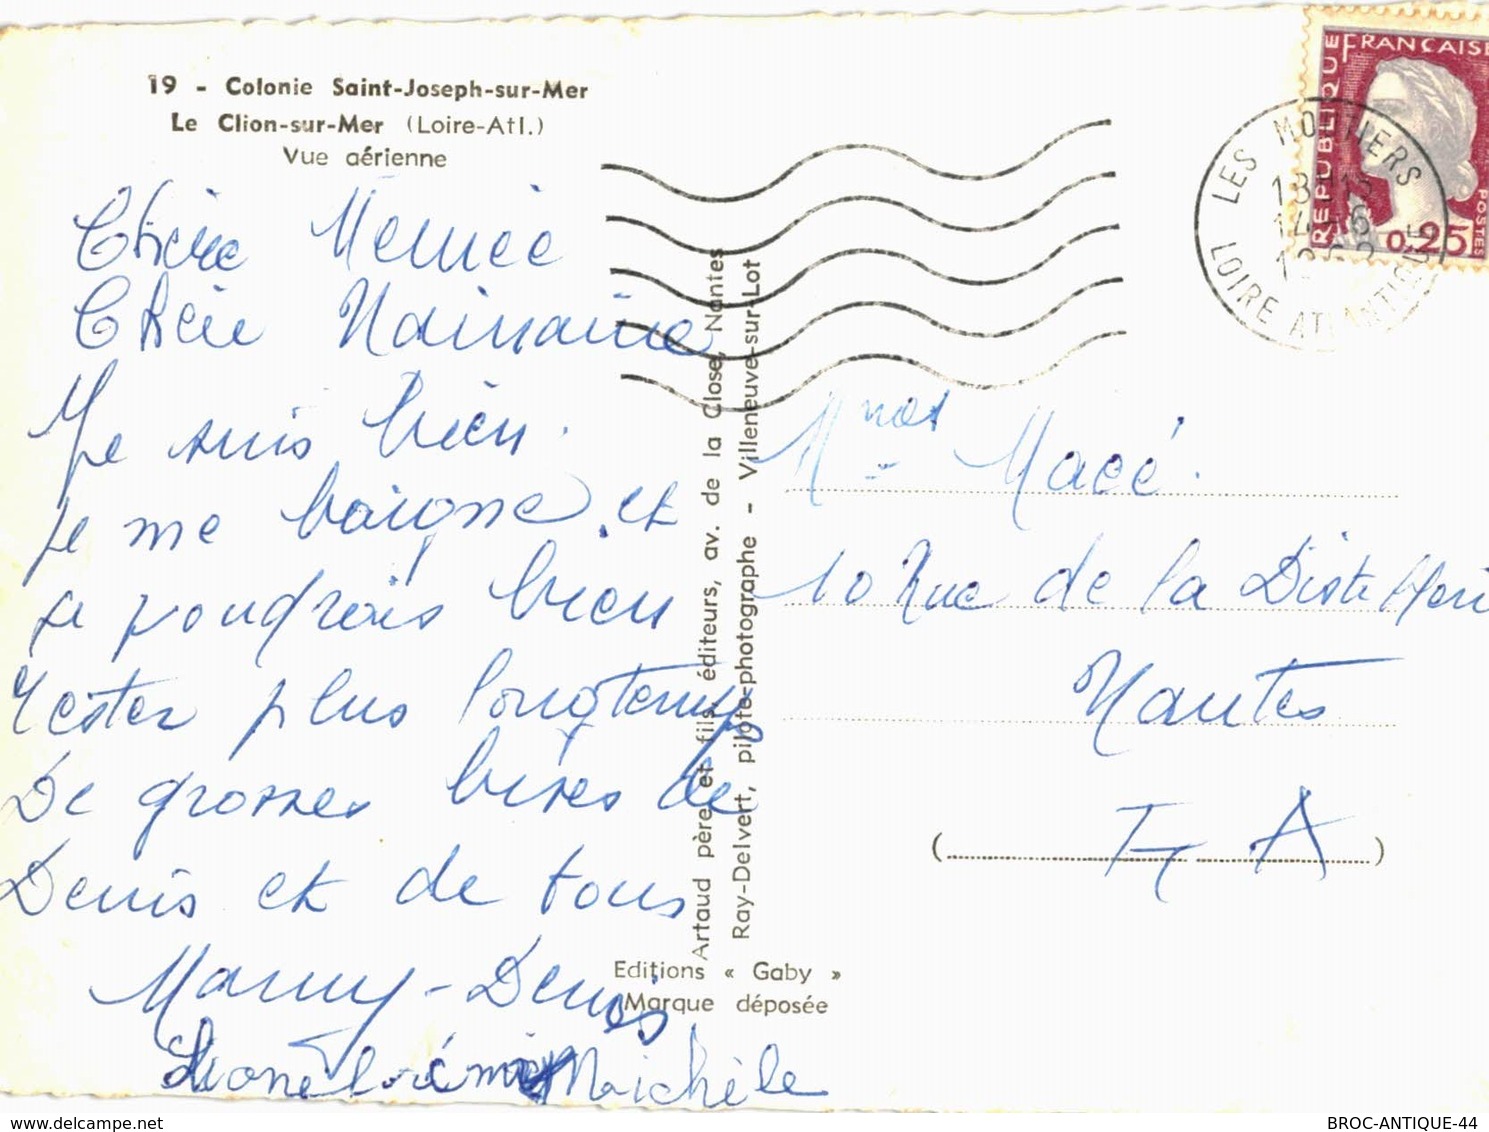 19 - Colonie Saint-Joseph-sur-Mer
Le Clion-sur-Mer (Loire-Atl.)
Vue aérienne
Chère Mémée
Chère Nainaine
Je suis bien.
je me baigne et
je voudrais bien
rester plus longtemps
De grosses bises de
Denis et de tous
Mamy - Denis
Lionel Michèle
Artaud père et fils, éditeurs, av. de la Close, Nantes
Ray-Delvert, pilote-photographe - Villeneuve-sur-Lot
Editions « Gaby »
Marque déposée
REPUBLIQUE FRANCAISE
0,25
POSTES
LES MOUTIERS
LOIRE ATLANTIQUE
Mmes Macé.
10 Rue de la
Nantes
L A
BROC-ANTIQUE-44